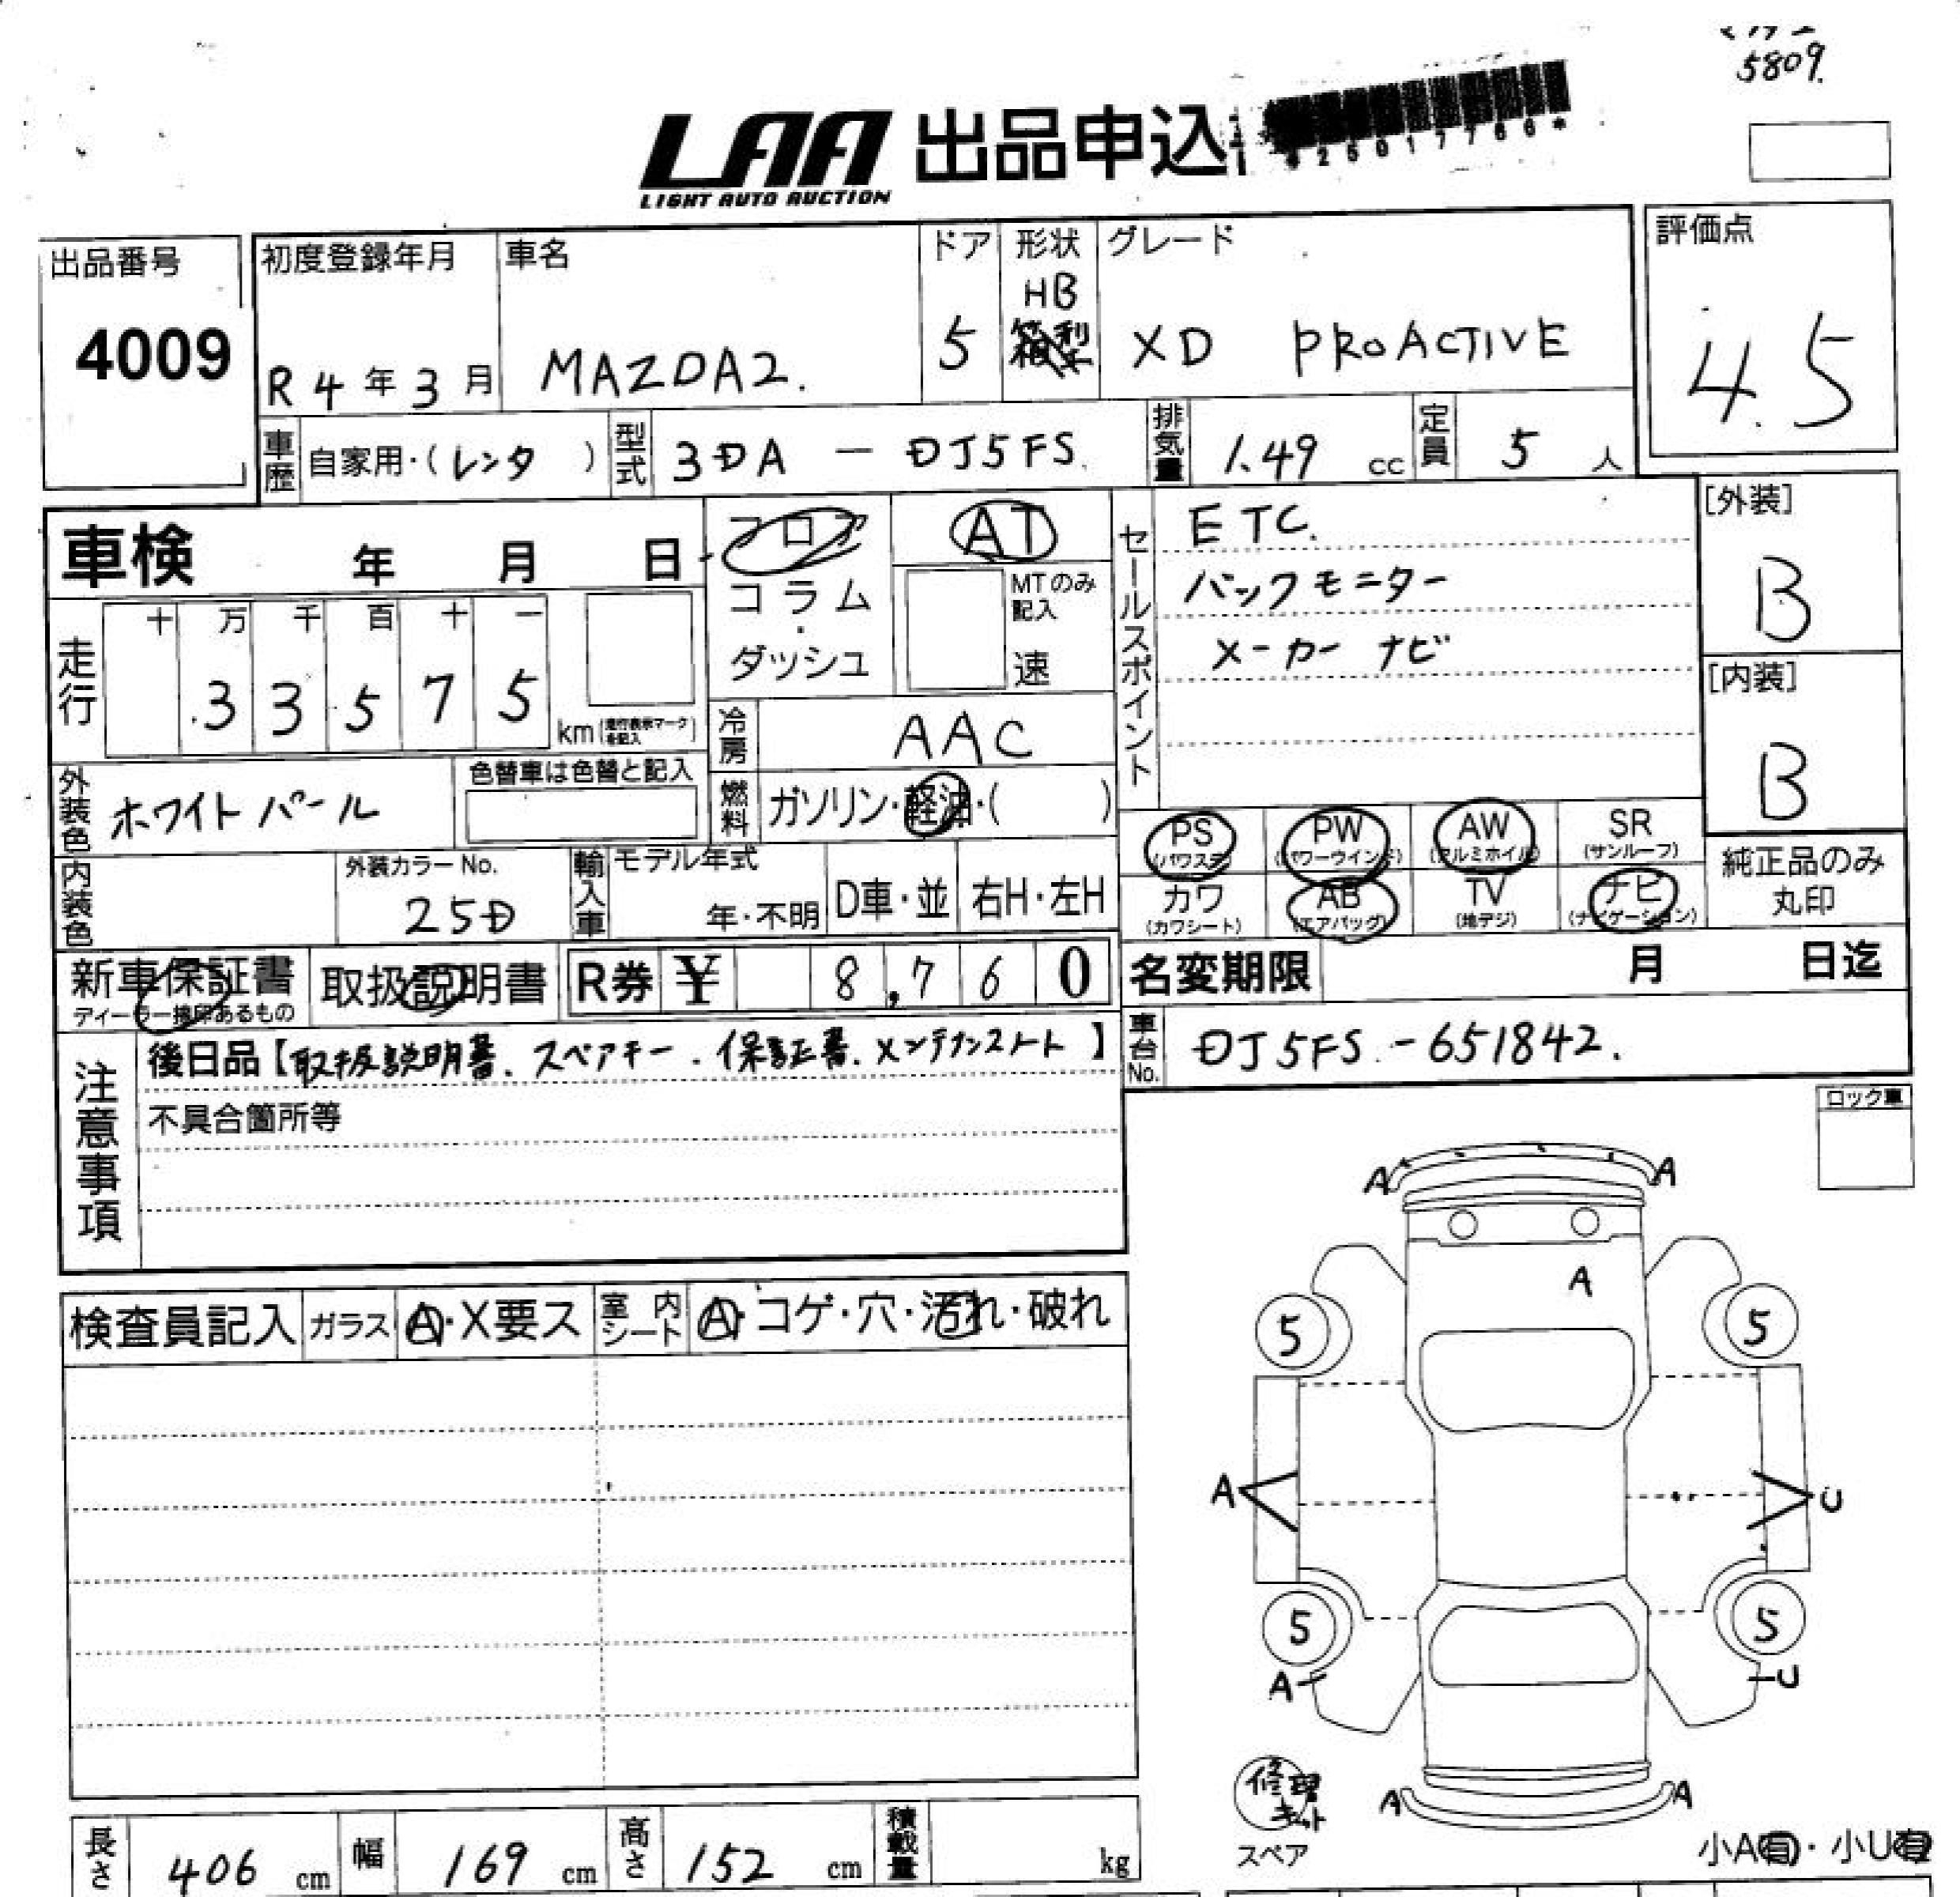 5809.
LAA 出品申込
LIGHT AUTO AUCTION
*25017766*
出品番号
4009
初度登録年月
R4年3月
車名
MAZDA2.
ドア
5
形状
HB
箱型
グレード
XD PROACTIVE
評価点
4.5
車歴
自家用・(レンタ)
型式
3DA - DJ5FS.
排気量
1.49 cc
定員
5 人
車検 年 月 日
フロア
コラム・
ダッシュ
AT
MTのみ記入
速
セールスポイント
ETC.
バックモニター
メーカーナビ
[外装]
B
[内装]
B
走行
十 万 千 百 十 一
3 3 5 7 5
km(走行表示マークを記入)
冷房
AAC
外装色
ホワイトパール
色替車は色替と記入
燃料
ガソリン・軽油・( )
PS
(パワステ)
PW
(パワーウインド)
AW
(アルミホイル)
SR
(サンルーフ)
カワ
(カワシート)
AB
(エアバッグ)
TV
(地デジ)
ナビ
(ナビゲーション)
純正品のみ
丸印
内装色
外装カラーNo.
25D
輸入車
モデル年式
年・不明
D車・並
右H・左H
新車保証書
ディーラー捺印あるもの
取扱説明書
R券 ¥ 8,760
名変期限 月 日迄
車台No.
DJ5FS-651842.
注意事項
後日品【取扱説明書、スペアキー、保証書、メンテナンスノート】
不具合箇所等
ロック車
検査員記入
ガラス
A・X要ス
室内シート
A・コゲ・穴・汚れ・破れ
A A
A
5 5
A U
5 5
A U
A A
修理キット
スペア
小A有・小U有
長さ
406 cm
幅
169 cm
高さ
152 cm
積載量
kg